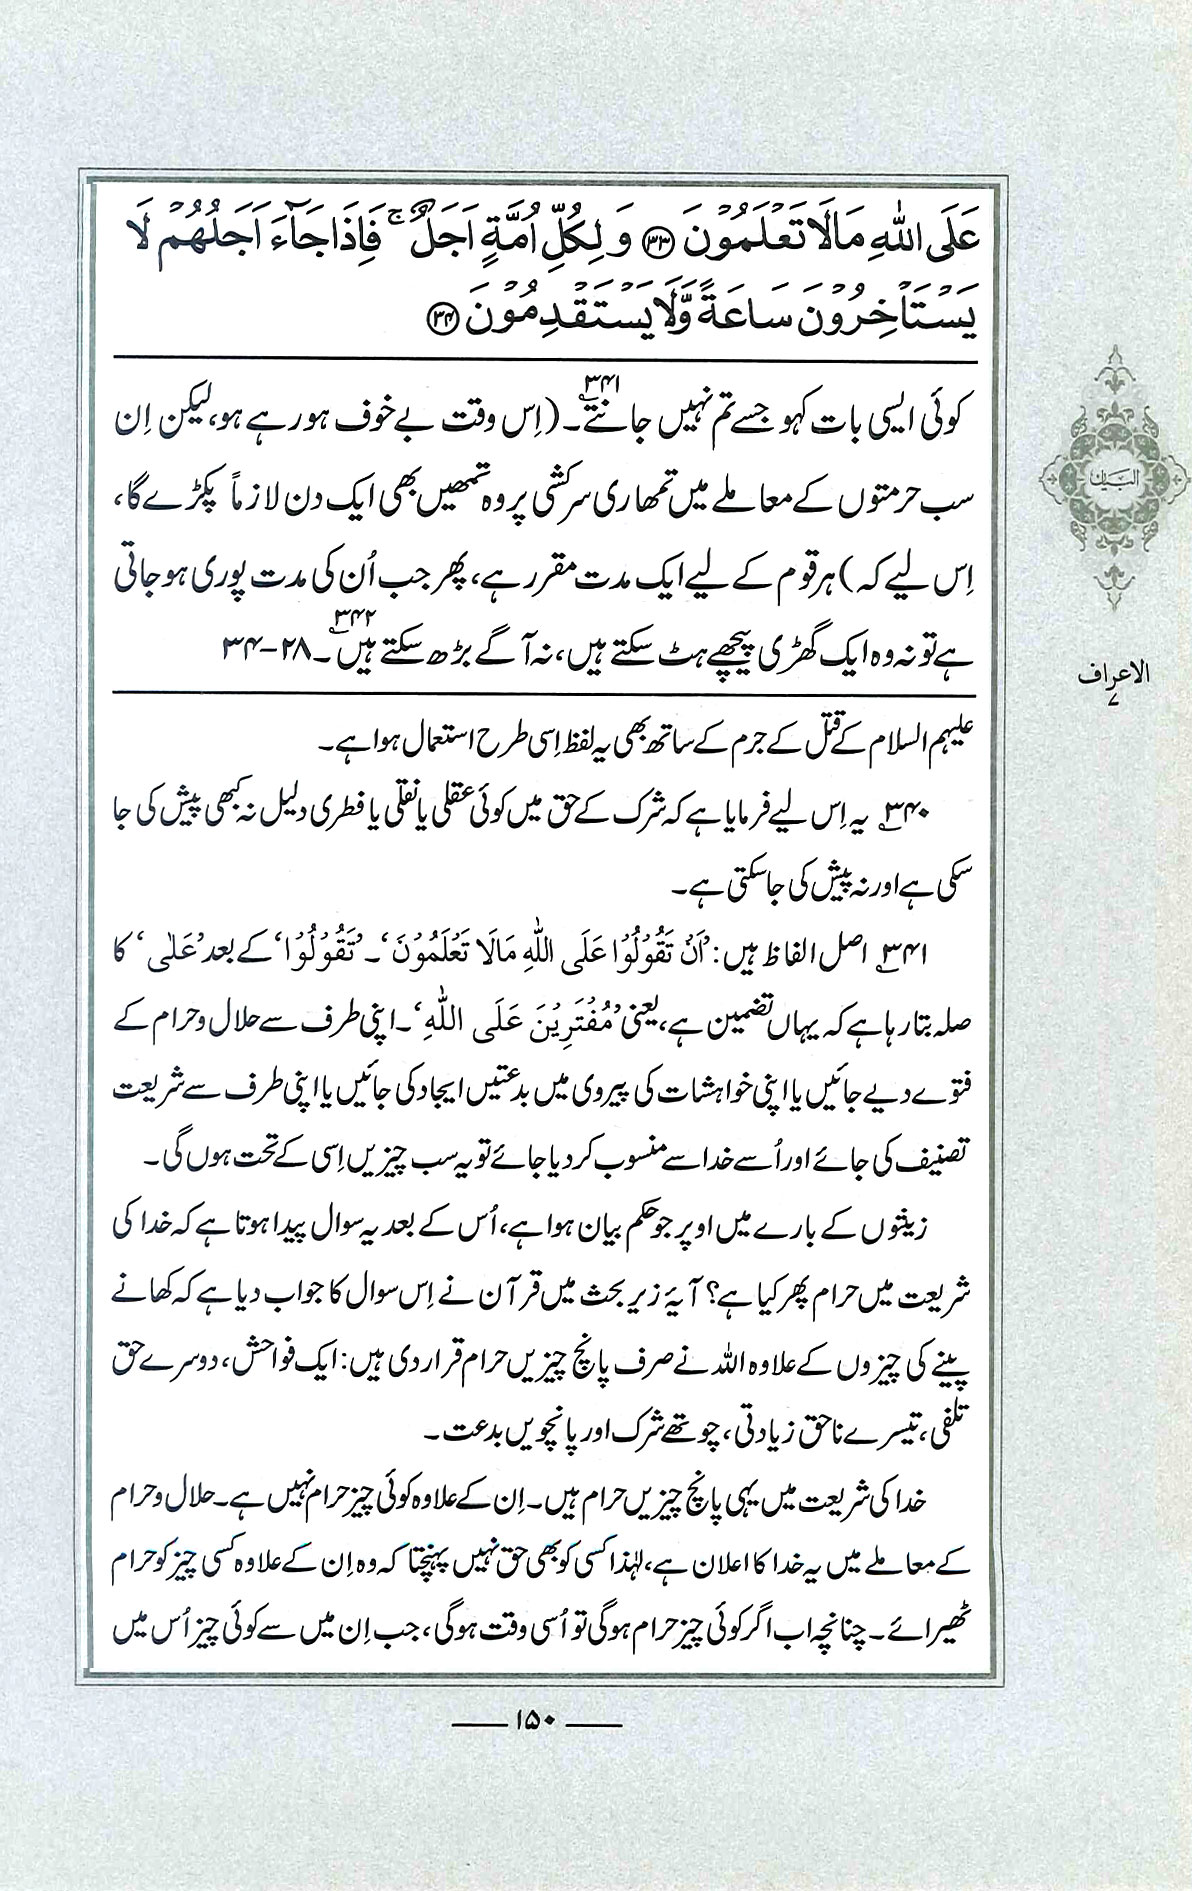 عَلَى اللّٰهِ مَا لَا تَعْلَمُوْنَ ﴿۳۳﴾ وَ لِكُلِّ اُمَّةٍ اَجَلٌ ۚ فَاِذَا جَآءَ اَجَلُهُمْ لَا
يَسْتَاْخِرُوْنَ سَاعَةً وَّلَا يَسْتَقْدِمُوْنَ ﴿۳۴﴾
کوئی ایسی بات کہو جسے تم نہیں جانتے۳۴۱۔ (اِس وقت بے خوف ہو رہے ہو، لیکن اِن
سب حرمتوں کے معاملے میں تمھاری سرکشی پر وہ تمھیں بھی ایک دن لازماً پکڑے گا،
اِس لیے کہ) ہر قوم کے لیے ایک مدت مقرر ہے، پھر جب اُن کی مدت پوری ہو جاتی
ہے تو نہ وہ ایک گھڑی پیچھے ہٹ سکتے ہیں، نہ آگے بڑھ سکتے ہیں۳۴۲۔ ۲۸-۳۴
البیان
الاعراف
۷
علیہم السلام کے قتل کے جرم کے ساتھ بھی یہ لفظ اِسی طرح استعمال ہوا ہے۔
۳۴۰ یہ اِس لیے فرمایا ہے کہ شرک کے حق میں کوئی عقلی یا نقلی یا فطری دلیل نہ کبھی پیش کی جا
سکی ہے اور نہ پیش کی جا سکتی ہے۔
۳۴۱ اصل الفاظ ہیں: ’اَنْ تَقُوْلُوْا عَلَى اللّٰهِ مَا لَا تَعْلَمُوْنَ‘۔ ’تَقُوْلُوْا‘ کے بعد ’عَلٰى‘ کا
صلہ بتا رہا ہے کہ یہاں تضمین ہے، یعنی ’مُفْتَرِيْنَ عَلَى اللّٰهِ‘۔ اپنی طرف سے حلال و حرام کے
فتوے دیے جائیں یا اپنی خواہشات کی پیروی میں بدعتیں ایجاد کی جائیں یا اپنی طرف سے شریعت
تصنیف کی جائے اور اُسے خدا سے منسوب کر دیا جائے تو یہ سب چیزیں اِسی کے تحت ہوں گی۔
زینتوں کے بارے میں اوپر جو حکم بیان ہوا ہے، اُس کے بعد یہ سوال پیدا ہوتا ہے کہ خدا کی
شریعت میں حرام پھر کیا ہے؟ آیۂ زیر بحث میں قرآن نے اِس سوال کا جواب دیا ہے کہ کھانے
پینے کی چیزوں کے علاوہ اللہ نے صرف پانچ چیزیں حرام قرار دی ہیں: ایک فواحش، دوسرے حق
تلفی، تیسرے ناحق زیادتی، چوتھے شرک اور پانچویں بدعت۔
خدا کی شریعت میں یہی پانچ چیزیں حرام ہیں۔ اِن کے علاوہ کوئی چیز حرام نہیں ہے۔ حلال و حرام
کے معاملے میں یہ خدا کا اعلان ہے، لہٰذا کسی کو بھی حق نہیں پہنچتا کہ وہ اِن کے علاوہ کسی چیز کو حرام
ٹھیرائے۔ چنانچہ اب اگر کوئی چیز حرام ہوگی تو اُسی وقت ہوگی، جب اِن میں سے کوئی چیز اُس میں
۱۵۰